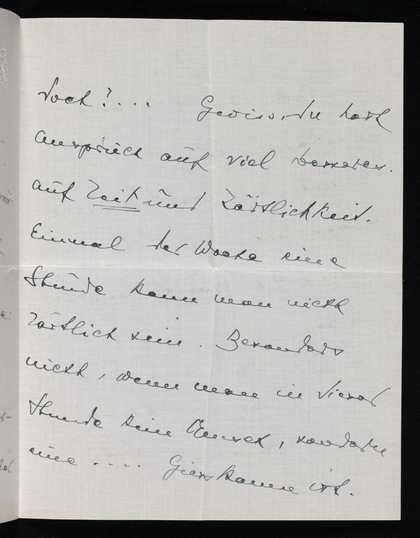 doch?... Gewiss, du hast
Anspruch auf viel besseres.
auf Zeit und Zärtlichkeit.
Einmal der Woche eine
Stunde kann man nicht
zärtlich sein. Besonders
nicht, wenn man in dieser
Stunde kein Mensch, sondern
eine .... Giesskanne ist.